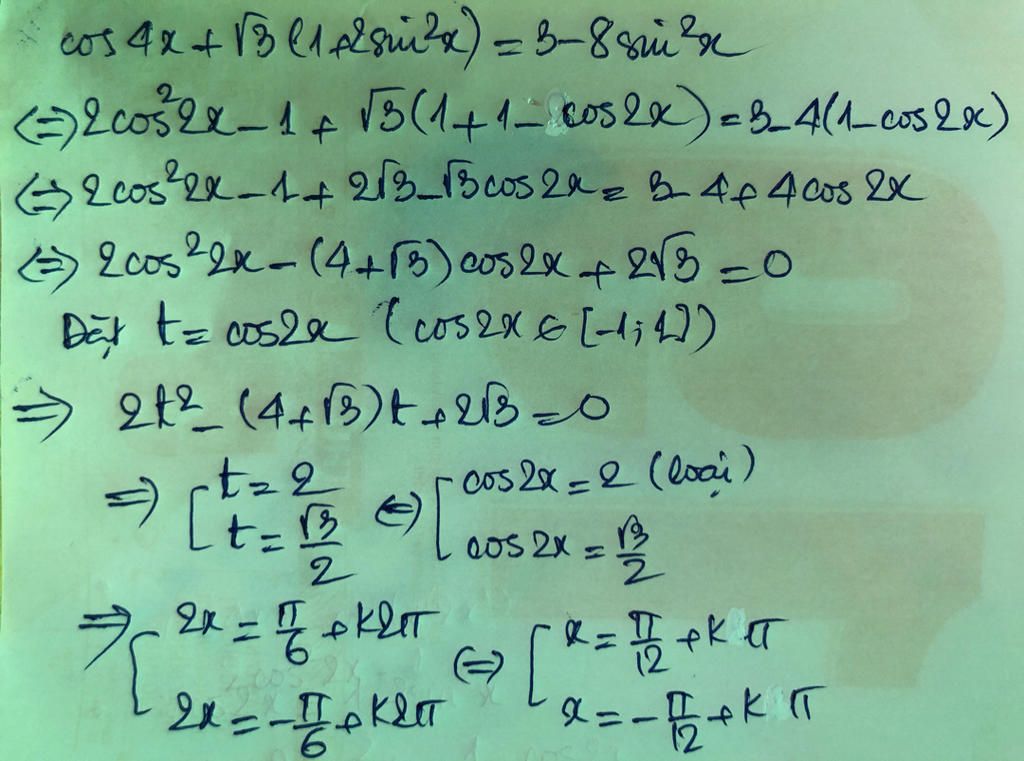 cos4x + √3(1+2sin²x) = 3-8sin²x
⇔ 2cos²2x - 1 + √3(1+1-cos2x) = 3-4(1-cos2x)
⇔ 2cos²2x - 1 + 2√3 - √3cos2x = 3-4+4cos2x
⇔ 2cos²2x - (4+√3)cos2x + 2√3 = 0
Đặt t = cos2x (cos2x ∈ [-1;1])
⇒ 2t² - (4+√3)t + 2√3 = 0
⇒ [t = 2 ⇔ [cos2x = 2 (loại)
t = √3/2 cos2x = √3/2
⇒ [2x = π/6 + k2π ⇔ [x = π/12 + kπ
2x = -π/6 + k2π x = -π/12 + kπ